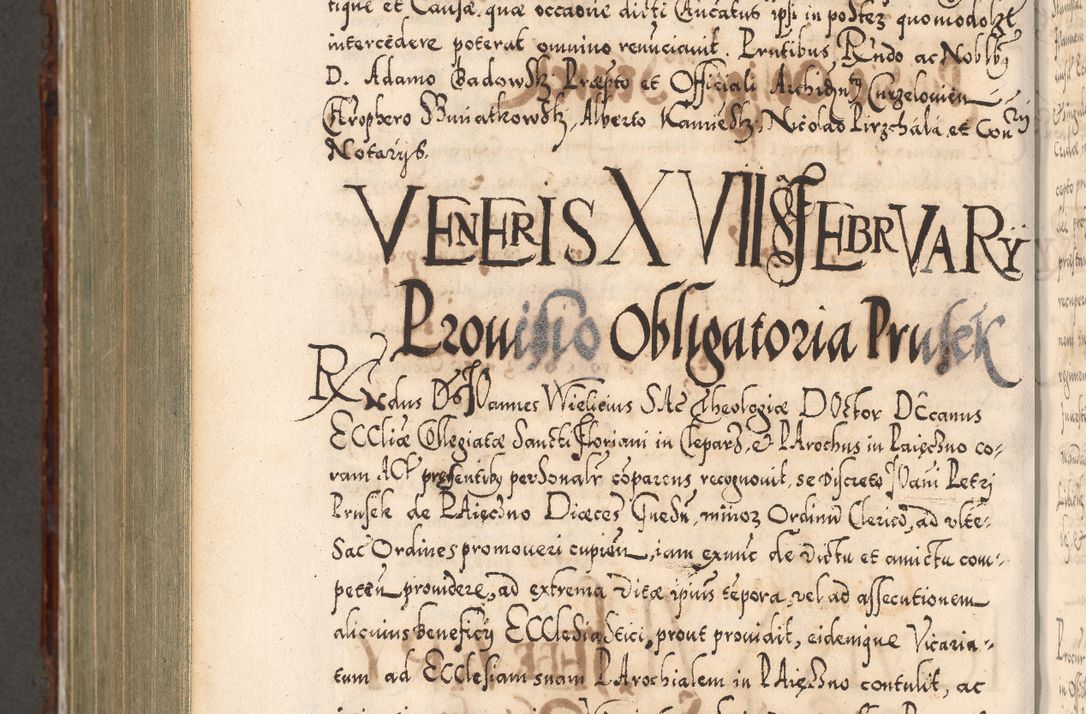 tique et Causæ, quæ occaōne dicti Aucatus ipsi in postez quomodolzt
intercēdere poterat omnino renūciavit. Prntibus Rndo ac Nobllbq
D. Adamo Badowski Præpto et Officiali Archidyntq Curzelovien
Chrophero Swiniatkowski, Alberto Kamieski, Nicolao Pirzchala, et Con
Notarijs.
VENERIS XVII FEBRVARŸ
Prouisio Obligatoria Prusek
Rndus Ds Joannes Wielicius SAc Theologiæ DOctor DEcanus
ECCliæ COllegiatæ Sancti Floriani in Clepard, & PArochus in Paięczno co-
ram ACt præsentibq personalr cōparens recognovit, se Discreto Joanni Petri
Prusek de PAięczno Diœces Gnesn, minoz Ordinū Clerico, ad vlte-
Sac Ordines promoveri cupien, iam exnūc de victu et amictu com-
peten providere, ad extrema vitæ ipius tēpora, vel ad assecutionem
alicuius beneficij ECClesiastici, prout providit, eidemque Vicaria-
tum ad ECClesiam suam PArochialem in PAięczno contulit, ac